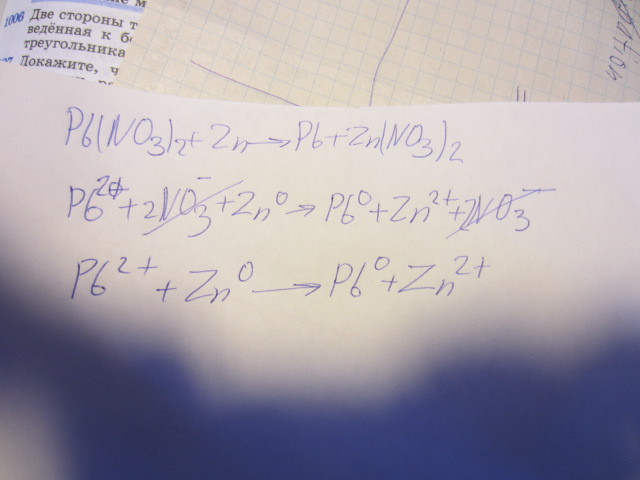 1006 Две стороны т
ведённая к б
треугольника
Докажите, ч
Pb(NO3)2 + Zn → Pb + Zn(NO3)2
Pb2+ + 2NO3- + Zn0 → Pb0 + Zn2+ + 2NO3-
Pb2+ + Zn0 → Pb0 + Zn2+